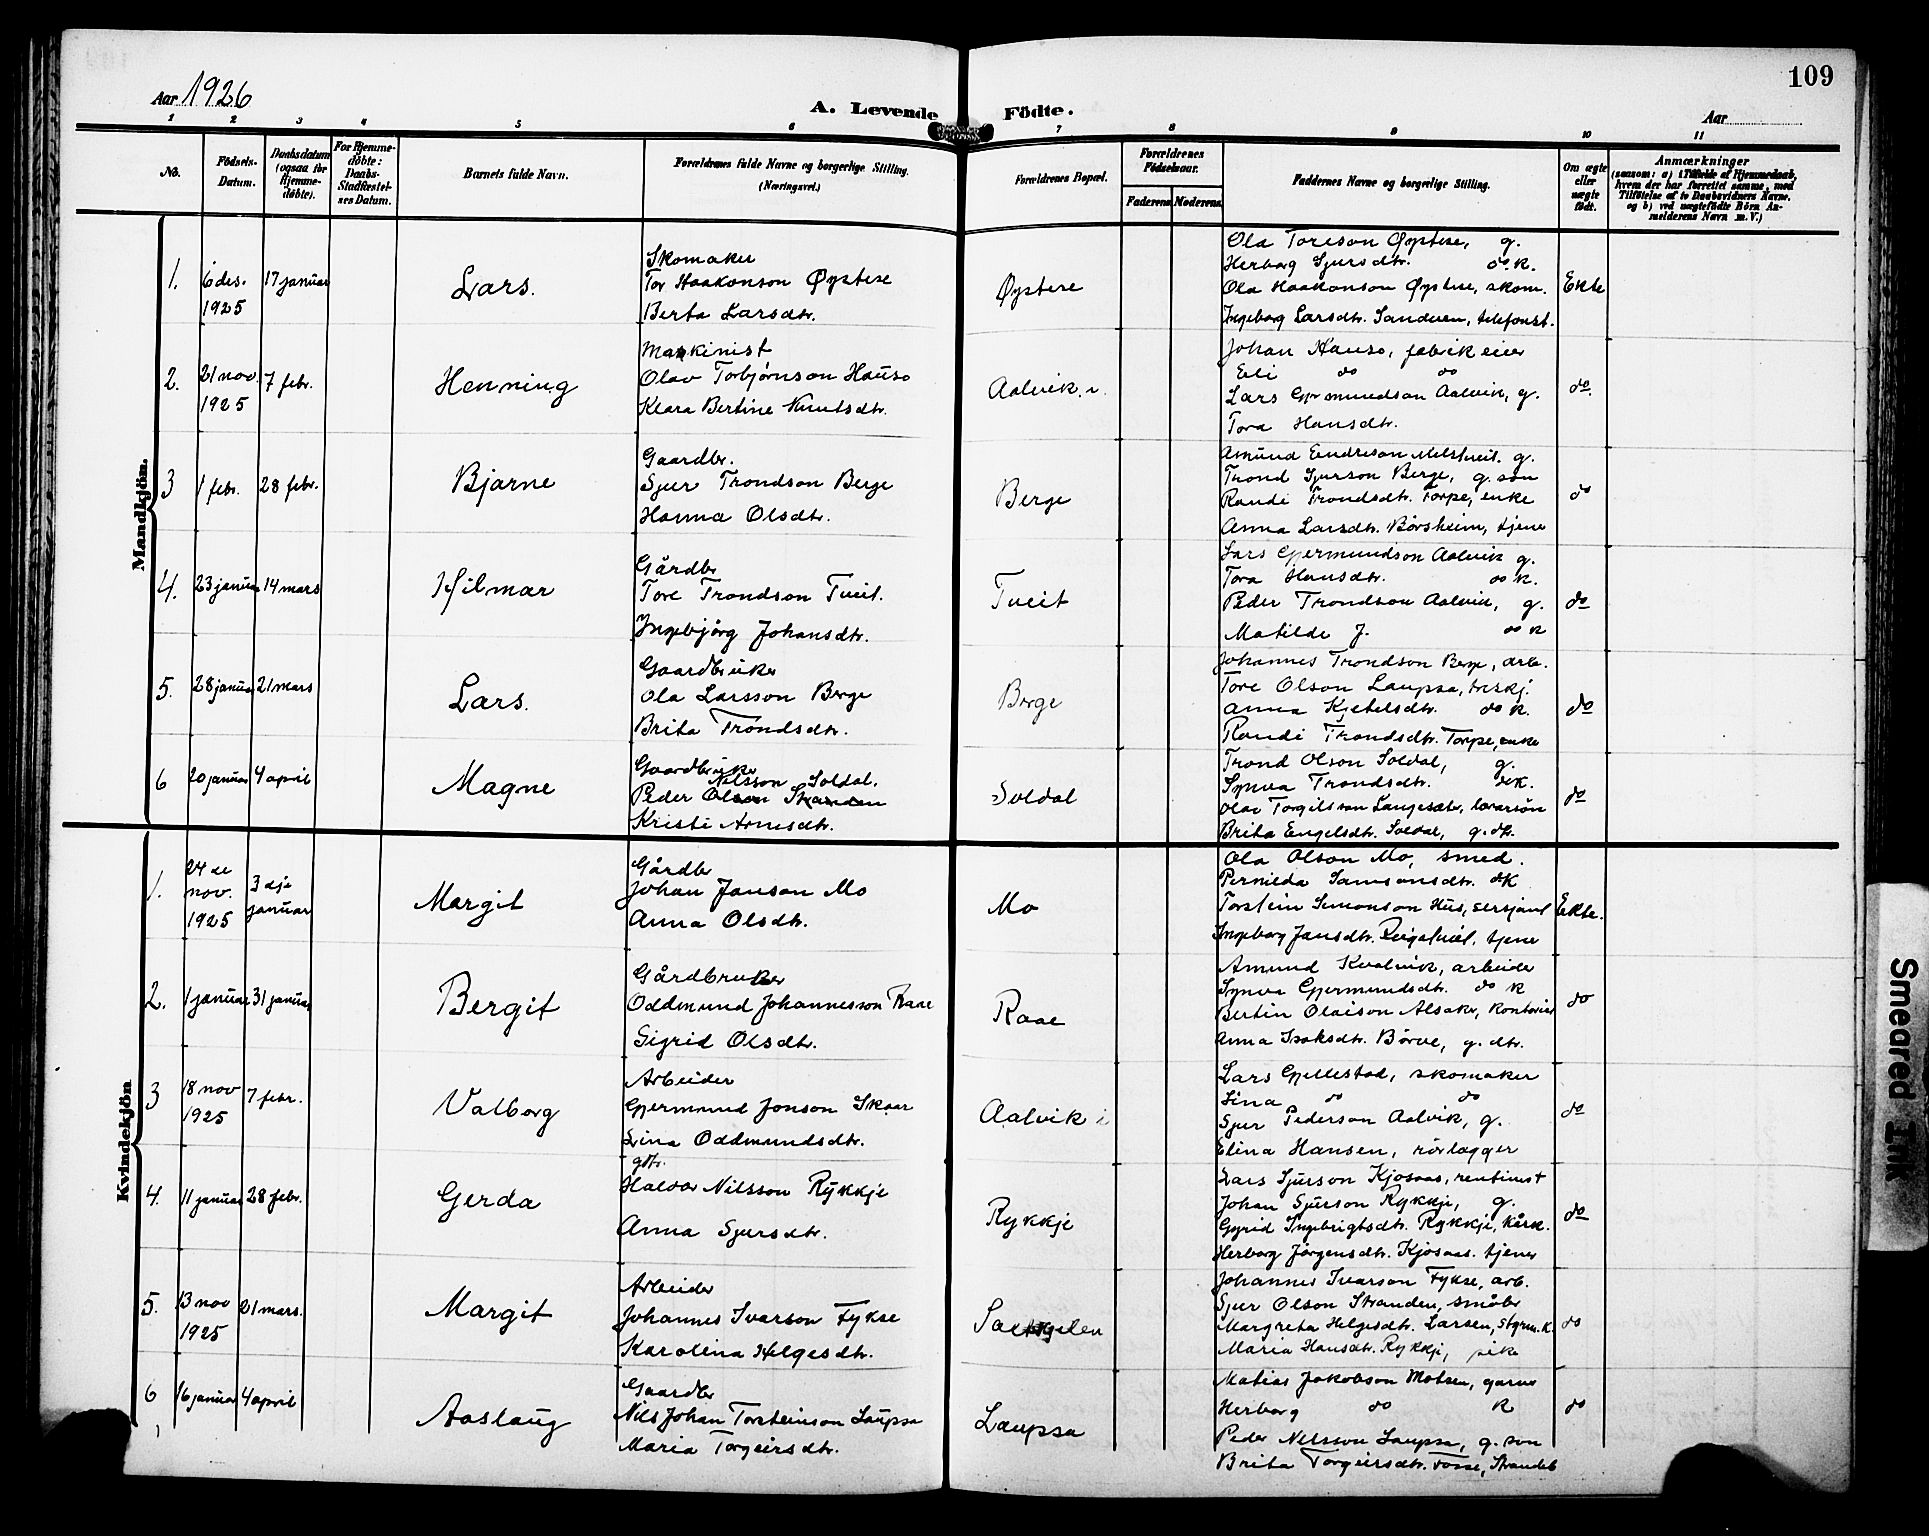 109
Aar 1926
A. Levende Födte.
Aar
1 2 3 4 5 6 7 8 9 10 11
No.
Födsels-Datum.
Daabsdatum (ogsaa for Hjemmedöbte).
For Hjemmedöbte: Daabs-Stadfæstelses Datum.
Barnets fulde Navn.
Forældrenes fulde Navne og borgerlige Stilling. (Næringsvei.)
Forældrenes Bopæl.
Forældrenes Födselsaar.
Faderens
Moderens
Faddernes Navne og borgerlige Stilling.
Om ægte eller uægte født.
Anmærkninger
(saasom: a) i Tilfælde af Hjemmedaab, hvem der har forrettet samme, med Tilföielse af to Daabsvidners Navne. og b) ved uægtefödte Börn Anmelderens Navn m. V.)
Mandkjön.
1. 6 des. 1925 17 januar Lars.
Skomaker
Tor Haakonson Øystese
Berta Larsdtr.
Øystese
Ola Toreson Øystese, g.
Herborg Sjursdtr. do. k.
Ola Haakonson Øystese, skom.
Ingeborg Larsdtr. Sandven, telefonst.
Ekte
2. 21 nov. 1925 7 febr. Henning
Maskinist
Olav Torbjørnson Hauso
Klara Bertine Knutsdtr.
Aalvik
Johan Hauso, fabrikeier
Eli do do
Lars Gjermundson Aalvik, g.
Tora Hansdtr.
do.
3 1 febr. 28 febr. Bjarne
Gaardbr.
Sjur Trondson Berge
Hanna Olsdtr.
Berge
Amund Eindrison Mélstveit. g.
Trond Sjurson Berge, g. søn
Randi Trondsdtr. Torpe, enke
Anna Larsdtr. Børsheim, tjene
do
4. 23 januar 14 mars Hilmar
Gårdbr
Tore Trondson Tveit.
Ingebjørg Johansdtr.
Tveit
Lars Gjermundson Aalvik g.
Tora Hansdtr. do k.
Peder Trondson Aalvik, g.
Matilde J. do k
do
5. 28 januar 21 mars Lars.
Gaardbruker
Ola Larsson Berge
Brita Trondsdtr.
Berge
Johannes Trondson Berge, arb.
Tore Olson Laupsa, treskj.
Anna Kjetelsdtr. do k.
Randi Trondsdtr. Torpe, enke
do
6 20 januar 4 april Magne
Gaardbruker
Nilsson Soldal.
Peder Olson Stranden
Kristi Arnesdtr.
Soldal
Trond Olson Soldal, g.
Synva Trondsdtr. do k.
Olav Torgilsson Langesæter,
Brita Engelsdtr. Soldal, g. dtr.
do
Kvindekjön
1. 24 de nov. 1925 3 dje januar Margit
Gårdbr
Johan Janson Mo
Anna Olsdtr.
Mo
Ola Olson Mo, smed.
Pernilda Samsonsdtr. do K
Torstein Simonson Hus, sersjant
Ingeborg Jansdtr. tjene
Ekte.
2. 1 januar 31 januar Bergit
Gårdbruker
Oddmund Johannesson Raae
Sigrid Olsdtr.
Raae
Amund Kvalvik, arbeider
Synva Gjermundsdtr. do k
Bertin Olaison Alsaker, kontorist
Anna Isaksdtr. Børve, g. dtr.
do
3 18 nov 1925 7 febr. Valborg
Arbeider
Gjermund Jonson Skaar
Lina Oddmundsdtr.
Aalvik
Lars Gjellestad, skomaker
Lina do do
Sjur Pederson Aalvik, g.
Elina Hansen, rørlægger
do
4. 11 januar 28 febr. Gerda
gbr.
Haldor Nilsson Rykkje
Anna Sjursdtr.
Rykkje
Lars Sjurson Kjosaas, rentenist
Johan Sjurson Rykkje, g.
Gyrid Ingebrigtsdtr. Rykkje, kårk.
Herborg Jørgensdtr. Kjosaas. tjener
do
5. 13 nov 1925 21 mars. Margit
Arbeider
Johannes Ivarson Fykse
Karolina Helgesdtr.
Johannes Ivarson Fykse, arb.
Sjur Olson Stranden, småbr
Margreta Helgesdtr. Larsen, styrm. k.
Maria Hansdtr. Rykkje, pike
do
6 16 januar 4 april Aaslaug
Gaardbr
Nils Johan Torsteinson Laupsa
Maria Torgeirsdtr.
Laupsa
Matias Jakobson Motsen, garver
Herborg do k
Peder Nilsson Laupsa, g. son
Brita Torgeirsdtr. Fosse, Strandeb
do
Smeared Ink